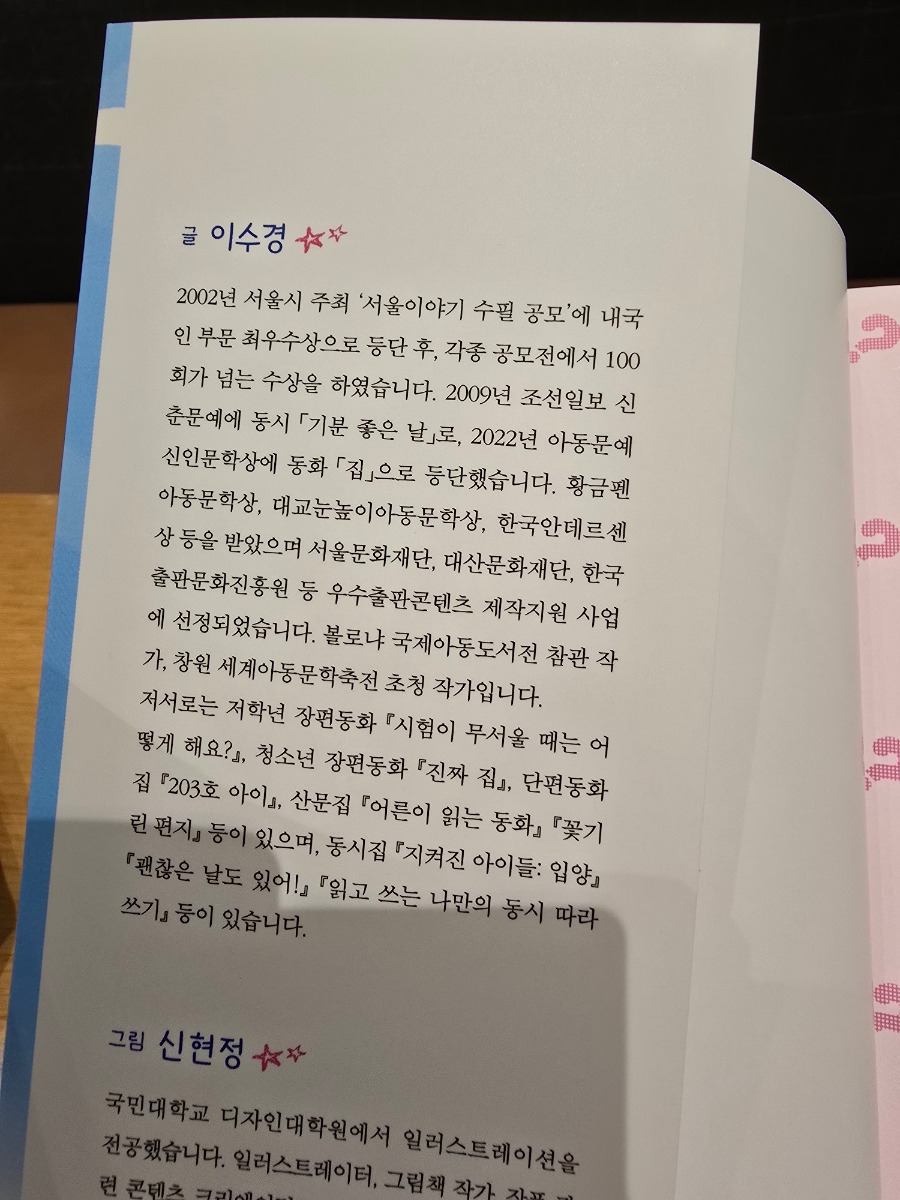 글 이수경
2002년 서울시 주최 ‘서울이야기 수필 공모’에 내국
인 부문 최우수상으로 등단 후, 각종 공모전에서 100
회가 넘는 수상을 하였습니다. 2009년 조선일보 신
춘문예에 동시 「기분 좋은 날」로, 2022년 아동문예
신인문학상에 동화 「집」으로 등단했습니다. 황금펜
아동문학상, 대교눈높이아동문학상, 한국안데르센
상 등을 받았으며 서울문화재단, 대산문화재단, 한국
출판문화진흥원 등 우수출판콘텐츠 제작지원 사업
에 선정되었습니다. 볼로냐 국제아동도서전 참관 작
가, 창원 세계아동문학축전 초청 작가입니다.
저서로는 저학년 장편동화 『시험이 무서울 때는 어
떻게 해요?』, 청소년 장편동화 『진짜 집』, 단편동화
집 『203호 아이』, 산문집 『어른이 읽는 동화』 『꽃기
린 편지』 등이 있으며, 동시집 『지켜진 아이들: 입양』
『괜찮은 날도 있어!』 『읽고 쓰는 나만의 동시 따라
쓰기』 등이 있습니다.
그림 신현정
국민대학교 디자인대학원에서 일러스트레이션을
전공했습니다. 일러스트레이터, 그림책 작가
련 콘텐츠